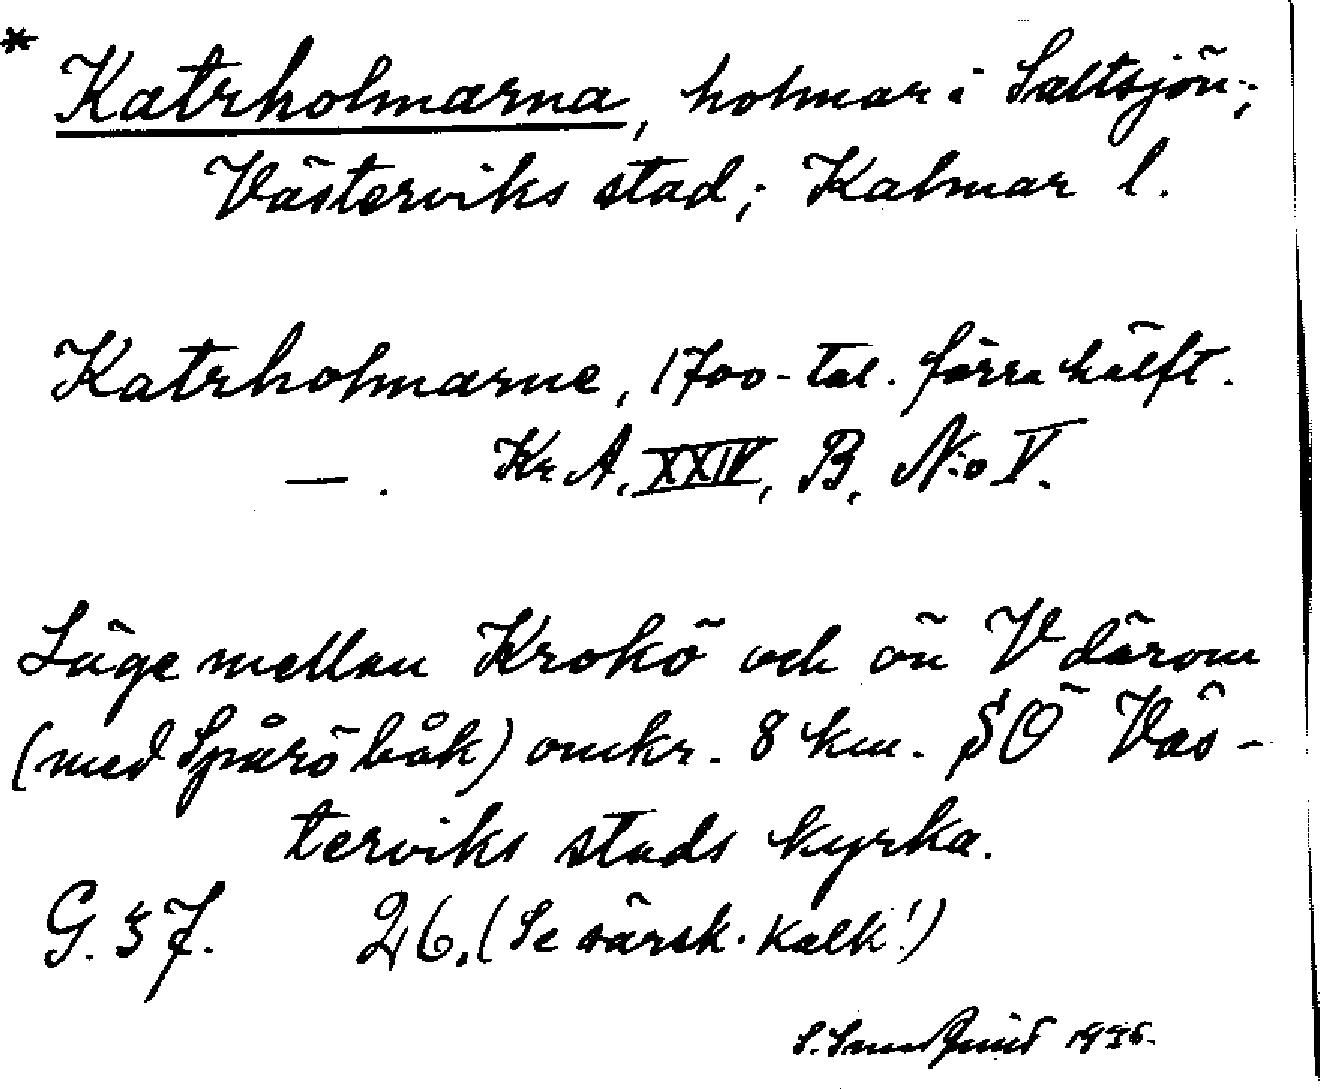 * Katrholmarna, holmar i Saltsjön;
Västerviks stad; Kalmar l.
Katrholmarne, 1700-tal. förra hälft.
— . Kr. A. XXIV, B. N:o V.
Läge mellan Krokö och ön V därom
(med Spårö båk) omkr. 8 km. SÖ Väs-
terviks stads kyrka.
G. 37. 26. (Se särsk. kalk!)
S. 1936.